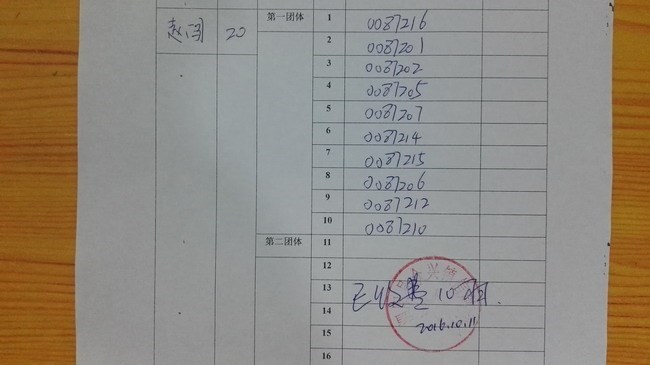 赵闯 20 第一团体 1 0087216
2 0087201
3 0087202
4 0087205
5 0087207
6 0087214
7 0087215
8 0087206
9 0087212
10 0087210
第二团体 11
12
13 10
14
2016.10.11
15
16